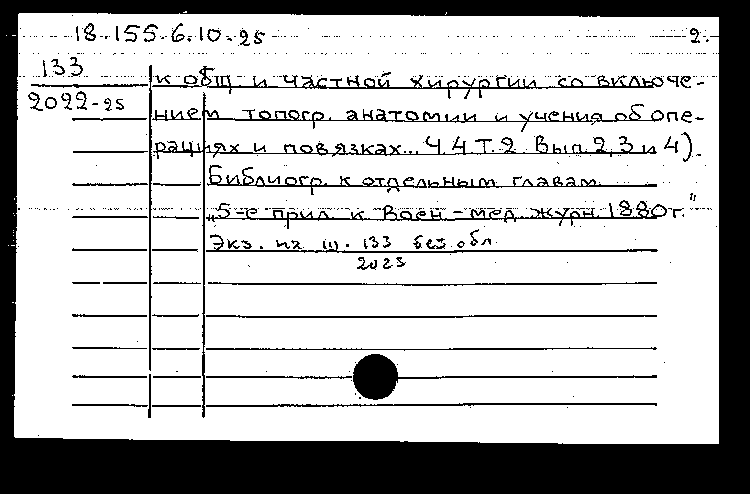 18.155.6.10-25
2.
133
2022-25
к общ и частной хирургии со включе-
нием топогр. анатомии и учения об опе-
рациях и повязках... Ч.4 Т.2 Вып. 2,3 и 4).
Библиогр. к отдельным главам
„5-е прил. к Воен-мед. журн. 1880г."
Экз. пх ш. 133 без обл.
2023